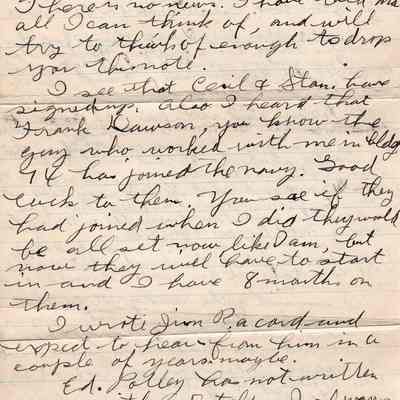 There is no news. I have told Ma
all I can think of, and will
try to think of enough to drop
you this note.
I see that Cecil & Stan. have
signed up. Also I heard that
Frank Dawson, you know the
guy who worked with me in bldg
94 has joined the navy. Good
luck to them. You see if they
had joined when I did they would
be all set now like I am, but
now they will have to start
in and I have 8 months on
them.
I wrote Jim P. a card and
expect to hear from him in a
couple of years maybe.
Ed. Polley has not written